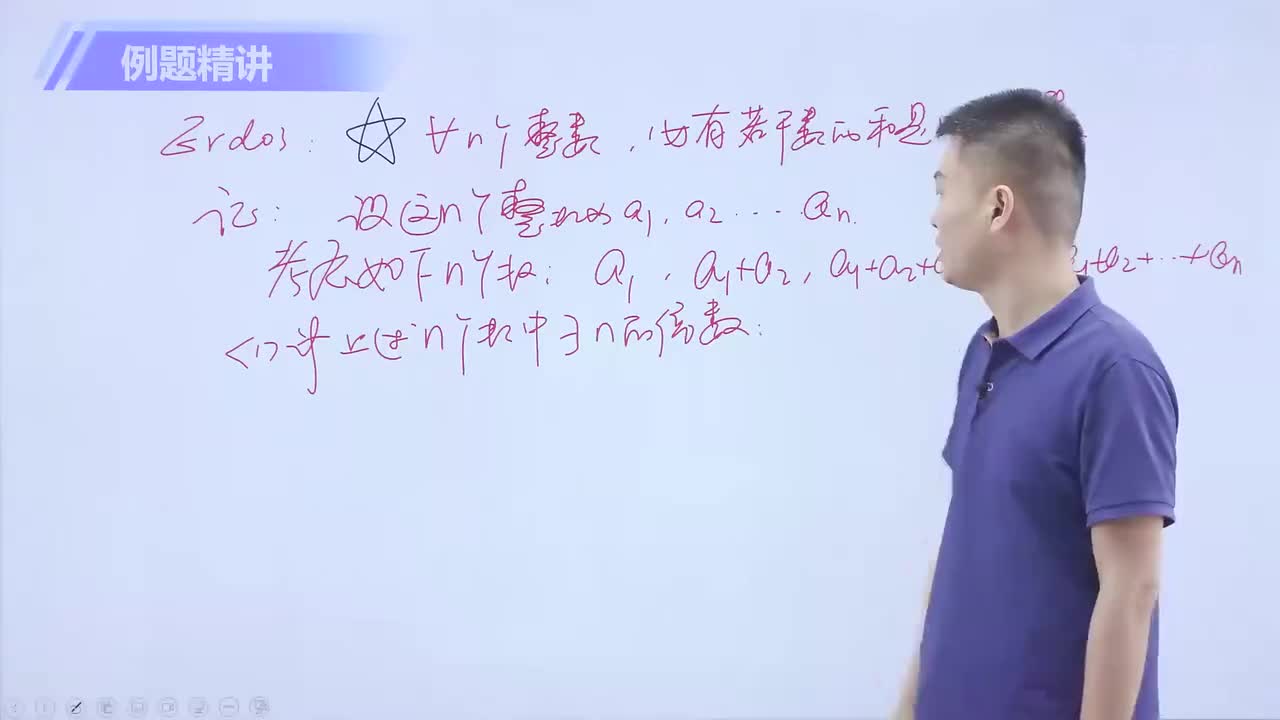 例题精讲
Erdos: ☆ ∀n个整数,必有若干数的和是
证: 设这n个整数为a₁, a₂ … aₙ.
考虑如下n个数: a₁, a₁+a₂, a₁+a₂+ a₁+a₂+…+aₙ
<1>若上述n个数中∃n的倍数: